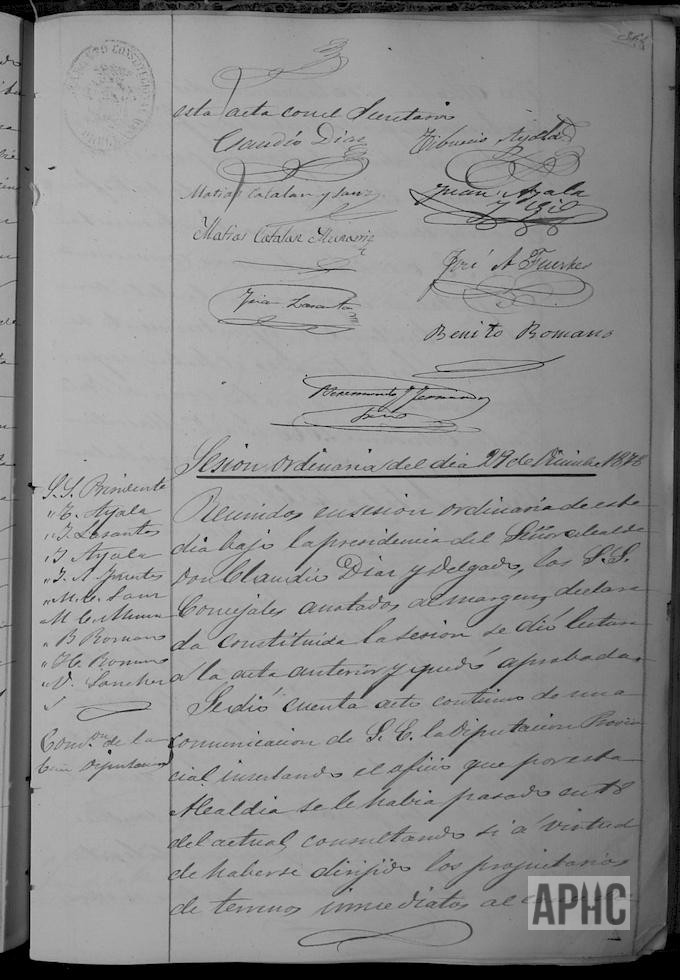 esta acta con el Secretario
Claudio Diaz
Tiburcio Ayala
Matias Catalan y Sanz
Juan Ayala
y Gil
Matias Catalan
José A Fuertes
Juan Lasanta
Benito Romano
Fernandez
Srio
Sesion ordinaria del dia 29 de Diciembre 1878
S.S. Presidente
" T. Ayala
" J. Lasantas
" J Ayala
" J. A Fuertes
" M. C. Sanz
M C.
" B Romano
" H. Romano
" V. Sanchez
Reunidos en sesion ordinaria de este
dia bajo la presidencia del Señor alcalde
Don Claudio Diaz y Delgado, los S.S.
Concejales anotados al margen, declara-
da constituida la sesion se dió lectura
a la acta anterior y quedó aprobada.
Se dió cuenta acto continuo de una
Comon de la
Diputacion
comunicacion de S. E. la Diputacion Provin
cial insertando el oficio que por esta
Alcaldia se le habia pasado en 18
del actual, consultando si á virtud
de haberse dirijido los propietarios
de terrenos inmediatos al
APHC